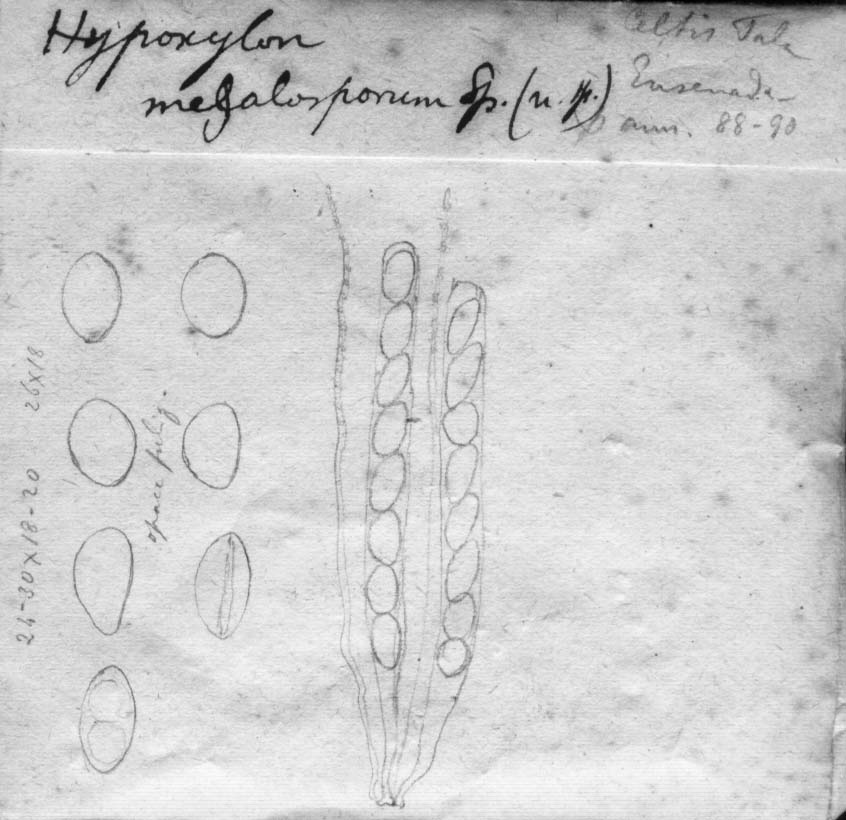 Hypoxylon
megalosporum Sp. (n. p.)
Celtis Tala
Ensenada
ann. 88-90
26x18
24-30x18-20
opace fulig.